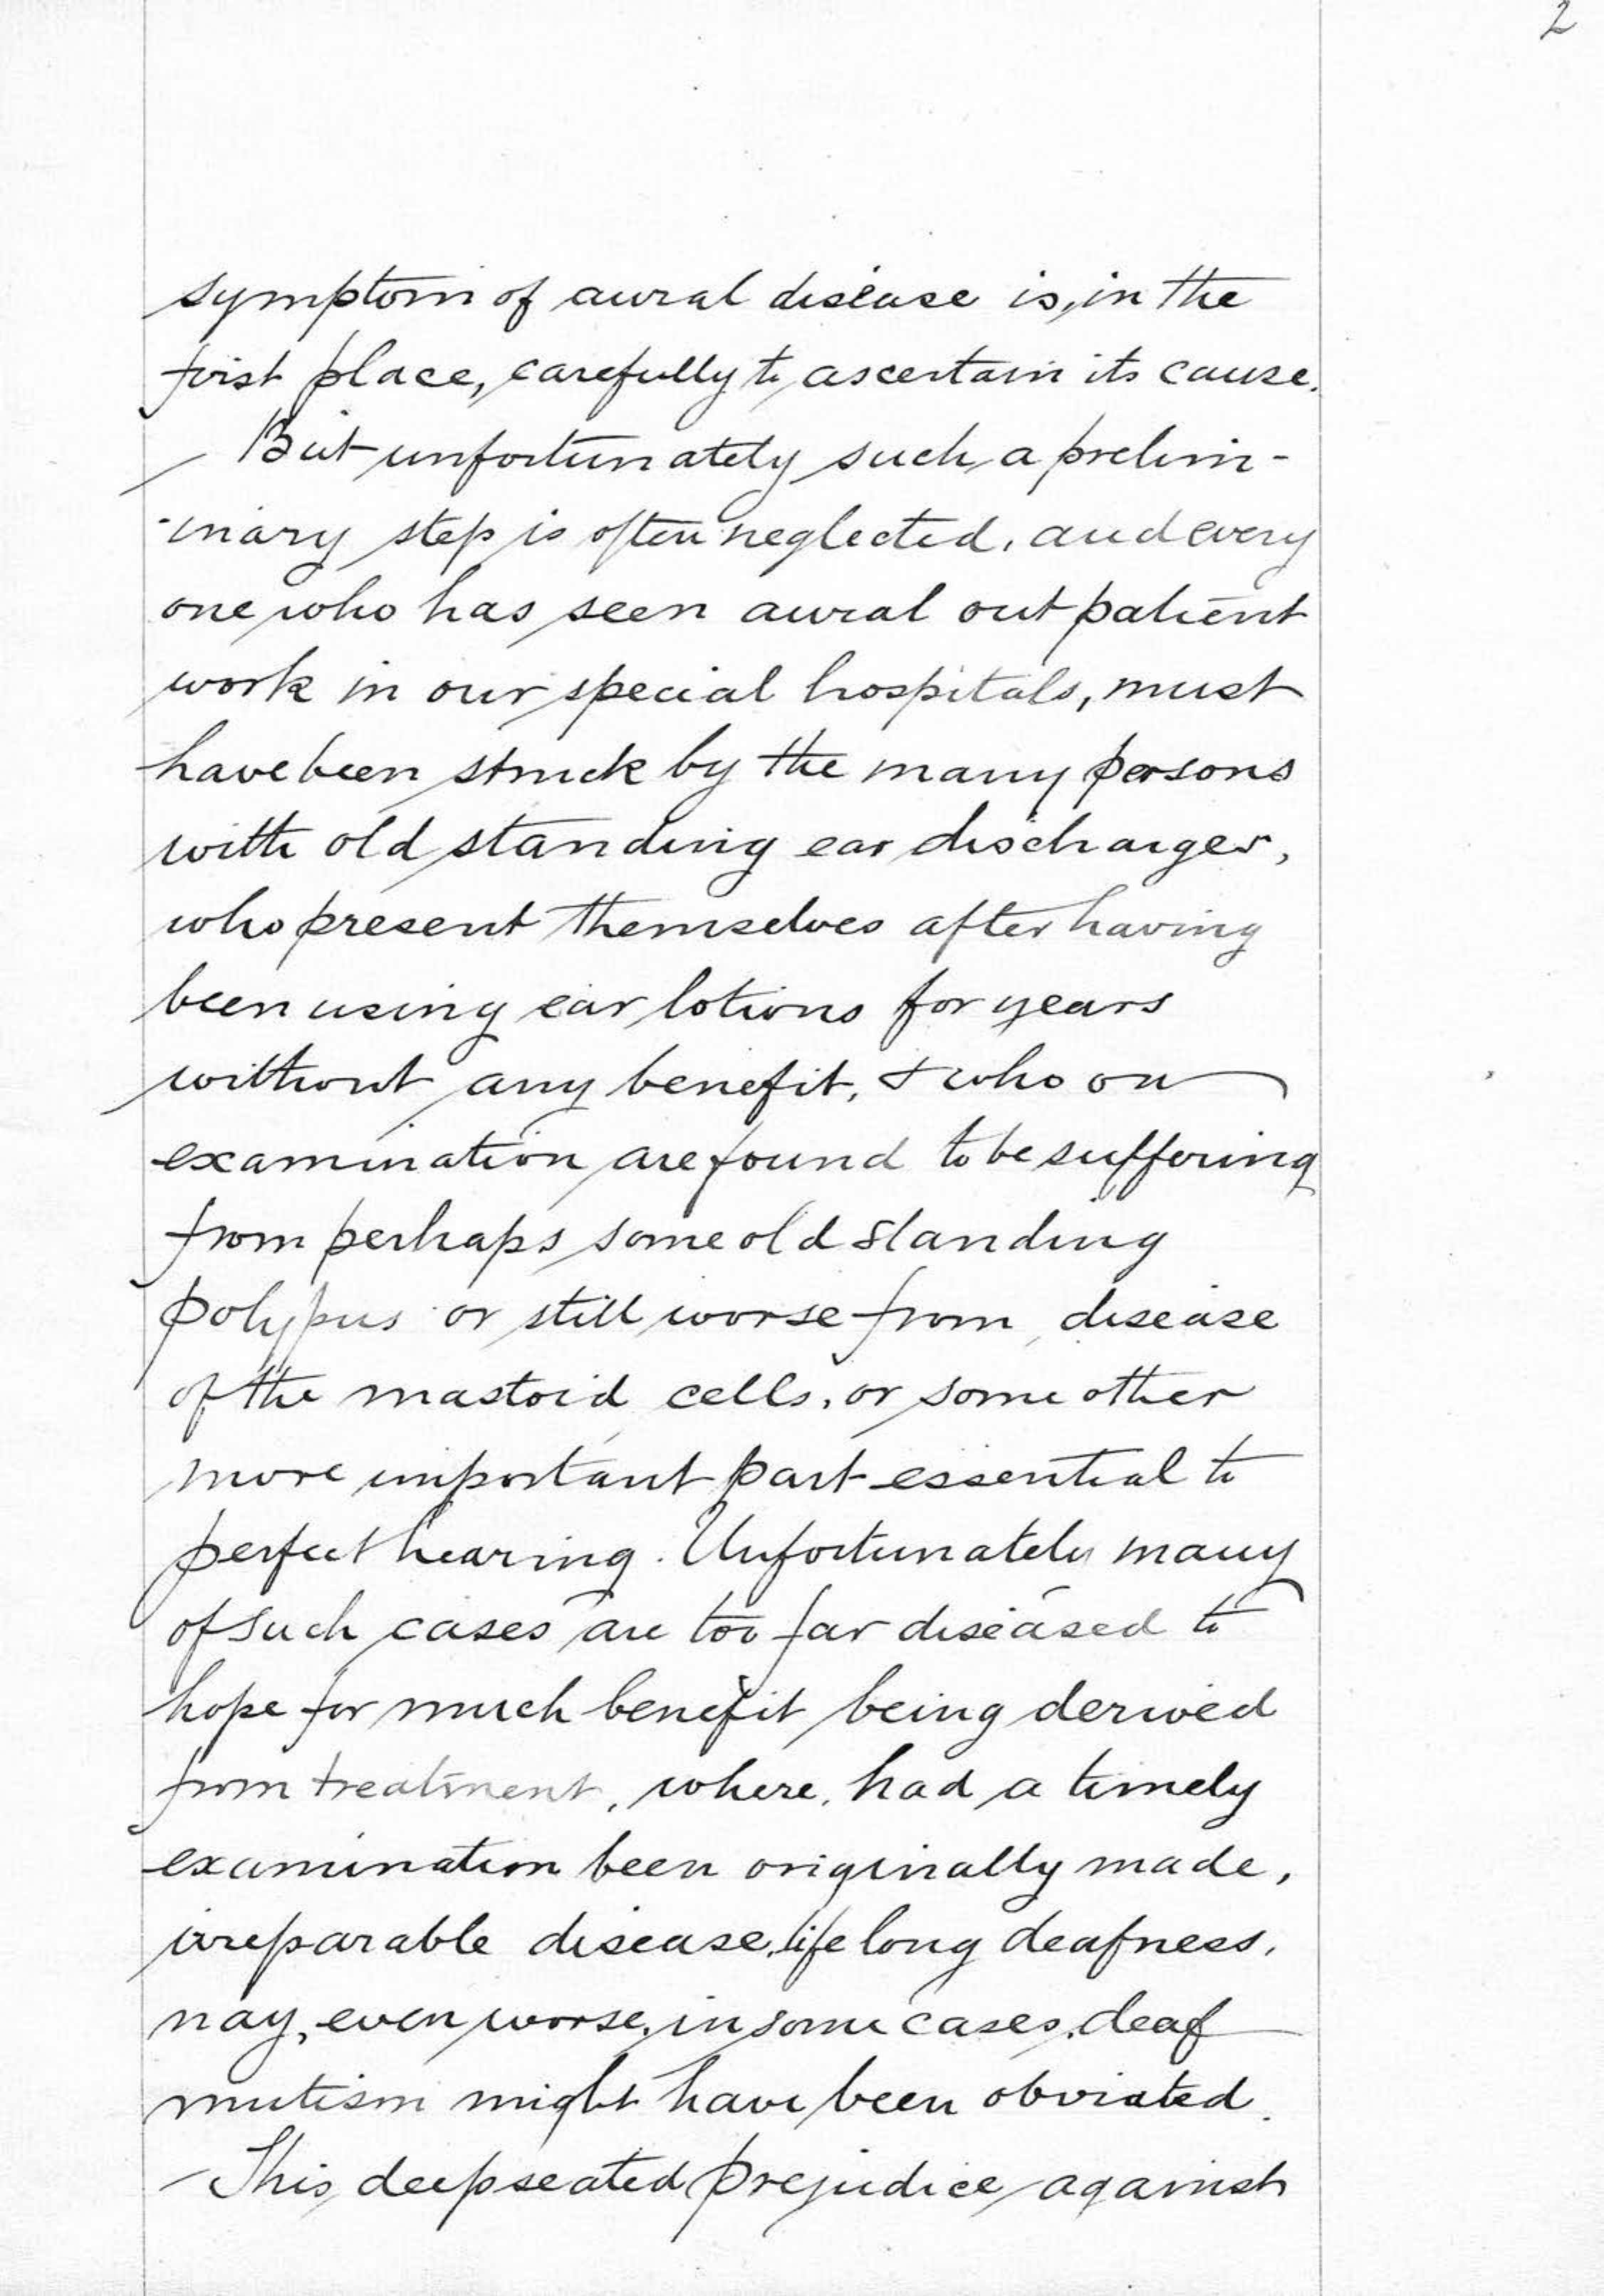 2
symptom of aural disease is, in the
first place, carefully to ascertain its cause.
But unfortunately such a prelim-
-inary step is often neglected, and every
one who has seen aural out patient
work in our special hospitals, must
have been struck by the many persons
with old standing ear discharges,
who present themselves after having
been using ear lotions for years
without any benefit, & who on
examination are found to be suffering
from perhaps some old standing
polypus or still worse from disease
of the mastoid cells, or some other
more important part essential to
perfect hearing. Unfortunately many
of such cases are too far diseased to
hope for much benefit being derived
from treatment, where, had a timely
examination been originally made,
irreparable disease, life long deafness,
nay, even worse, in some cases, deaf
mutism might have been obviated.
This deepseated prejudice against